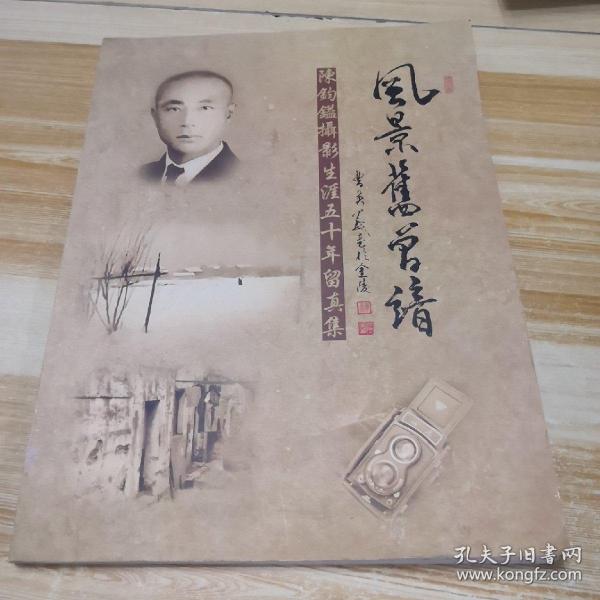 風景舊曾諳
於金陵
陳鈞鎰攝影生涯五十年留真集
孔夫子旧书网
www.kongfz.com